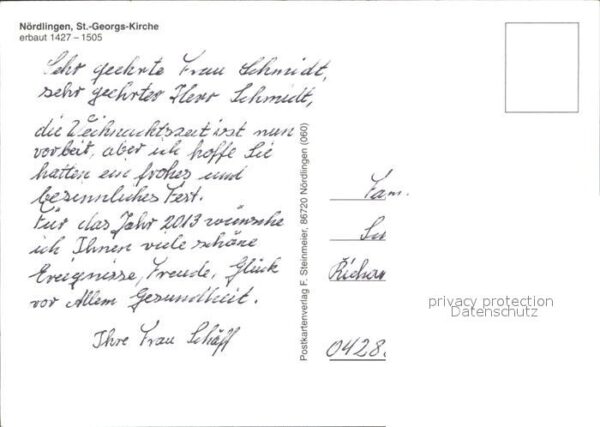 Nördlingen, St.-Georgs-Kirche
erbaut 1427 – 1505
Sehr geehrte Frau Schmidt,
sehr geehrter Herr Schmidt,
die Weihnachtszeit ist nun
vorbei, aber ich hoffe Sie
hatten ein frohes und
besinnliches Fest.
Für das Jahr 2013 wünsche
ich Ihnen viele schöne
Ereignisse, Freude, Glück
vor Allem Gesundheit.
Ihre Frau Schäfl
Postkartenverlag F. Steinmeier, 86720 Nördlingen (060)
Fam.
Sc
Richar
0428.
privacy protection
Datenschutz